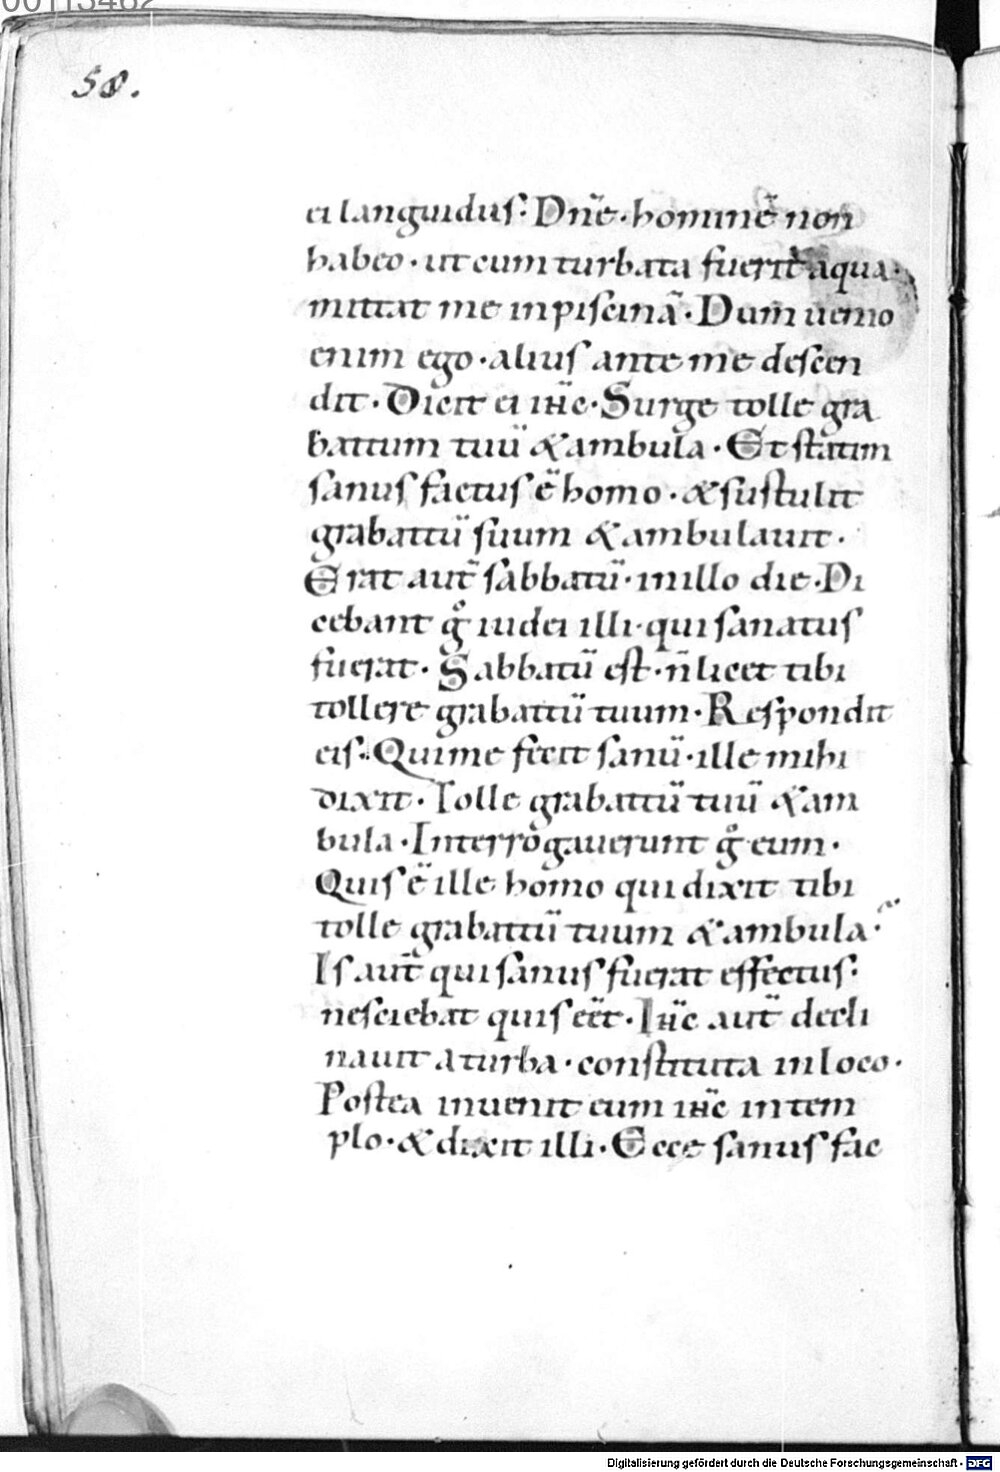 00113482
58.
ei languidus: Dñe · hominē non
habeo · ut cum turbata fuerit aqua ·
mittat me in piscinā · Dum uenio
enim ego · alius ante me descen
dit · Dicit ei ihc̄ · Surge tolle gra
battum tuū & ambula · Et statim
sanus factus ē homo · & sustulit
grabattū suum & ambulauit ·
Erat aut̄ sabbatū · in illo die · Di
cebant gͦ iudei illi · qui sanatus
fuerat · Sabbatū est · n̄ licet tibi
tollere grabattū tuum · Respondit
eis · Qui me fecit sanū · ille mihi
dixit · Tolle grabattū tuū & am
bula · Interrogauerunt gͦ eum ·
Quis ē ille homo qui dixit tibi
tolle grabattū tuum & ambula ·
Is aut̄ qui sanus fuerat effectus:
nesciebat quis eēt · Ihc̄ aut̄ decli
nauit a turba · constituta in loco ·
Postea inuenit eum ihc̄ in tem
plo · & dixit illi · Ecce sanus fac
Digitalisierung gefördert durch die Deutsche Forschungsgemeinschaft - DFG